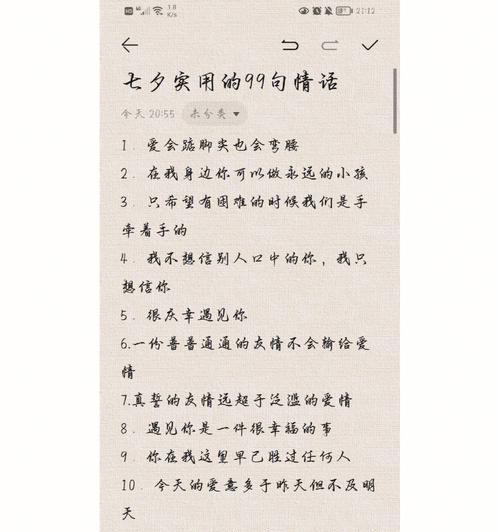 1.8
K/s
21:12
七夕实用的99句情话
今天 20:55 未分类
1. 爱会踮脚尖也会弯腰
2. 在我身边你可以做永远的小孩
3. 只希望有困难的时候我们是手
牵着手的
4. 我不想信别人口中的你，我只
想信你
5. 很庆幸遇见你
6.一份普普通通的友情不会输给爱
情
7.真誓的友情远超于泛滥的爱情
8. 遇见你是一件很幸福的事
9. 你在我这里早已胜过任何人
10. 今天的爱意多于昨天但不及明
天